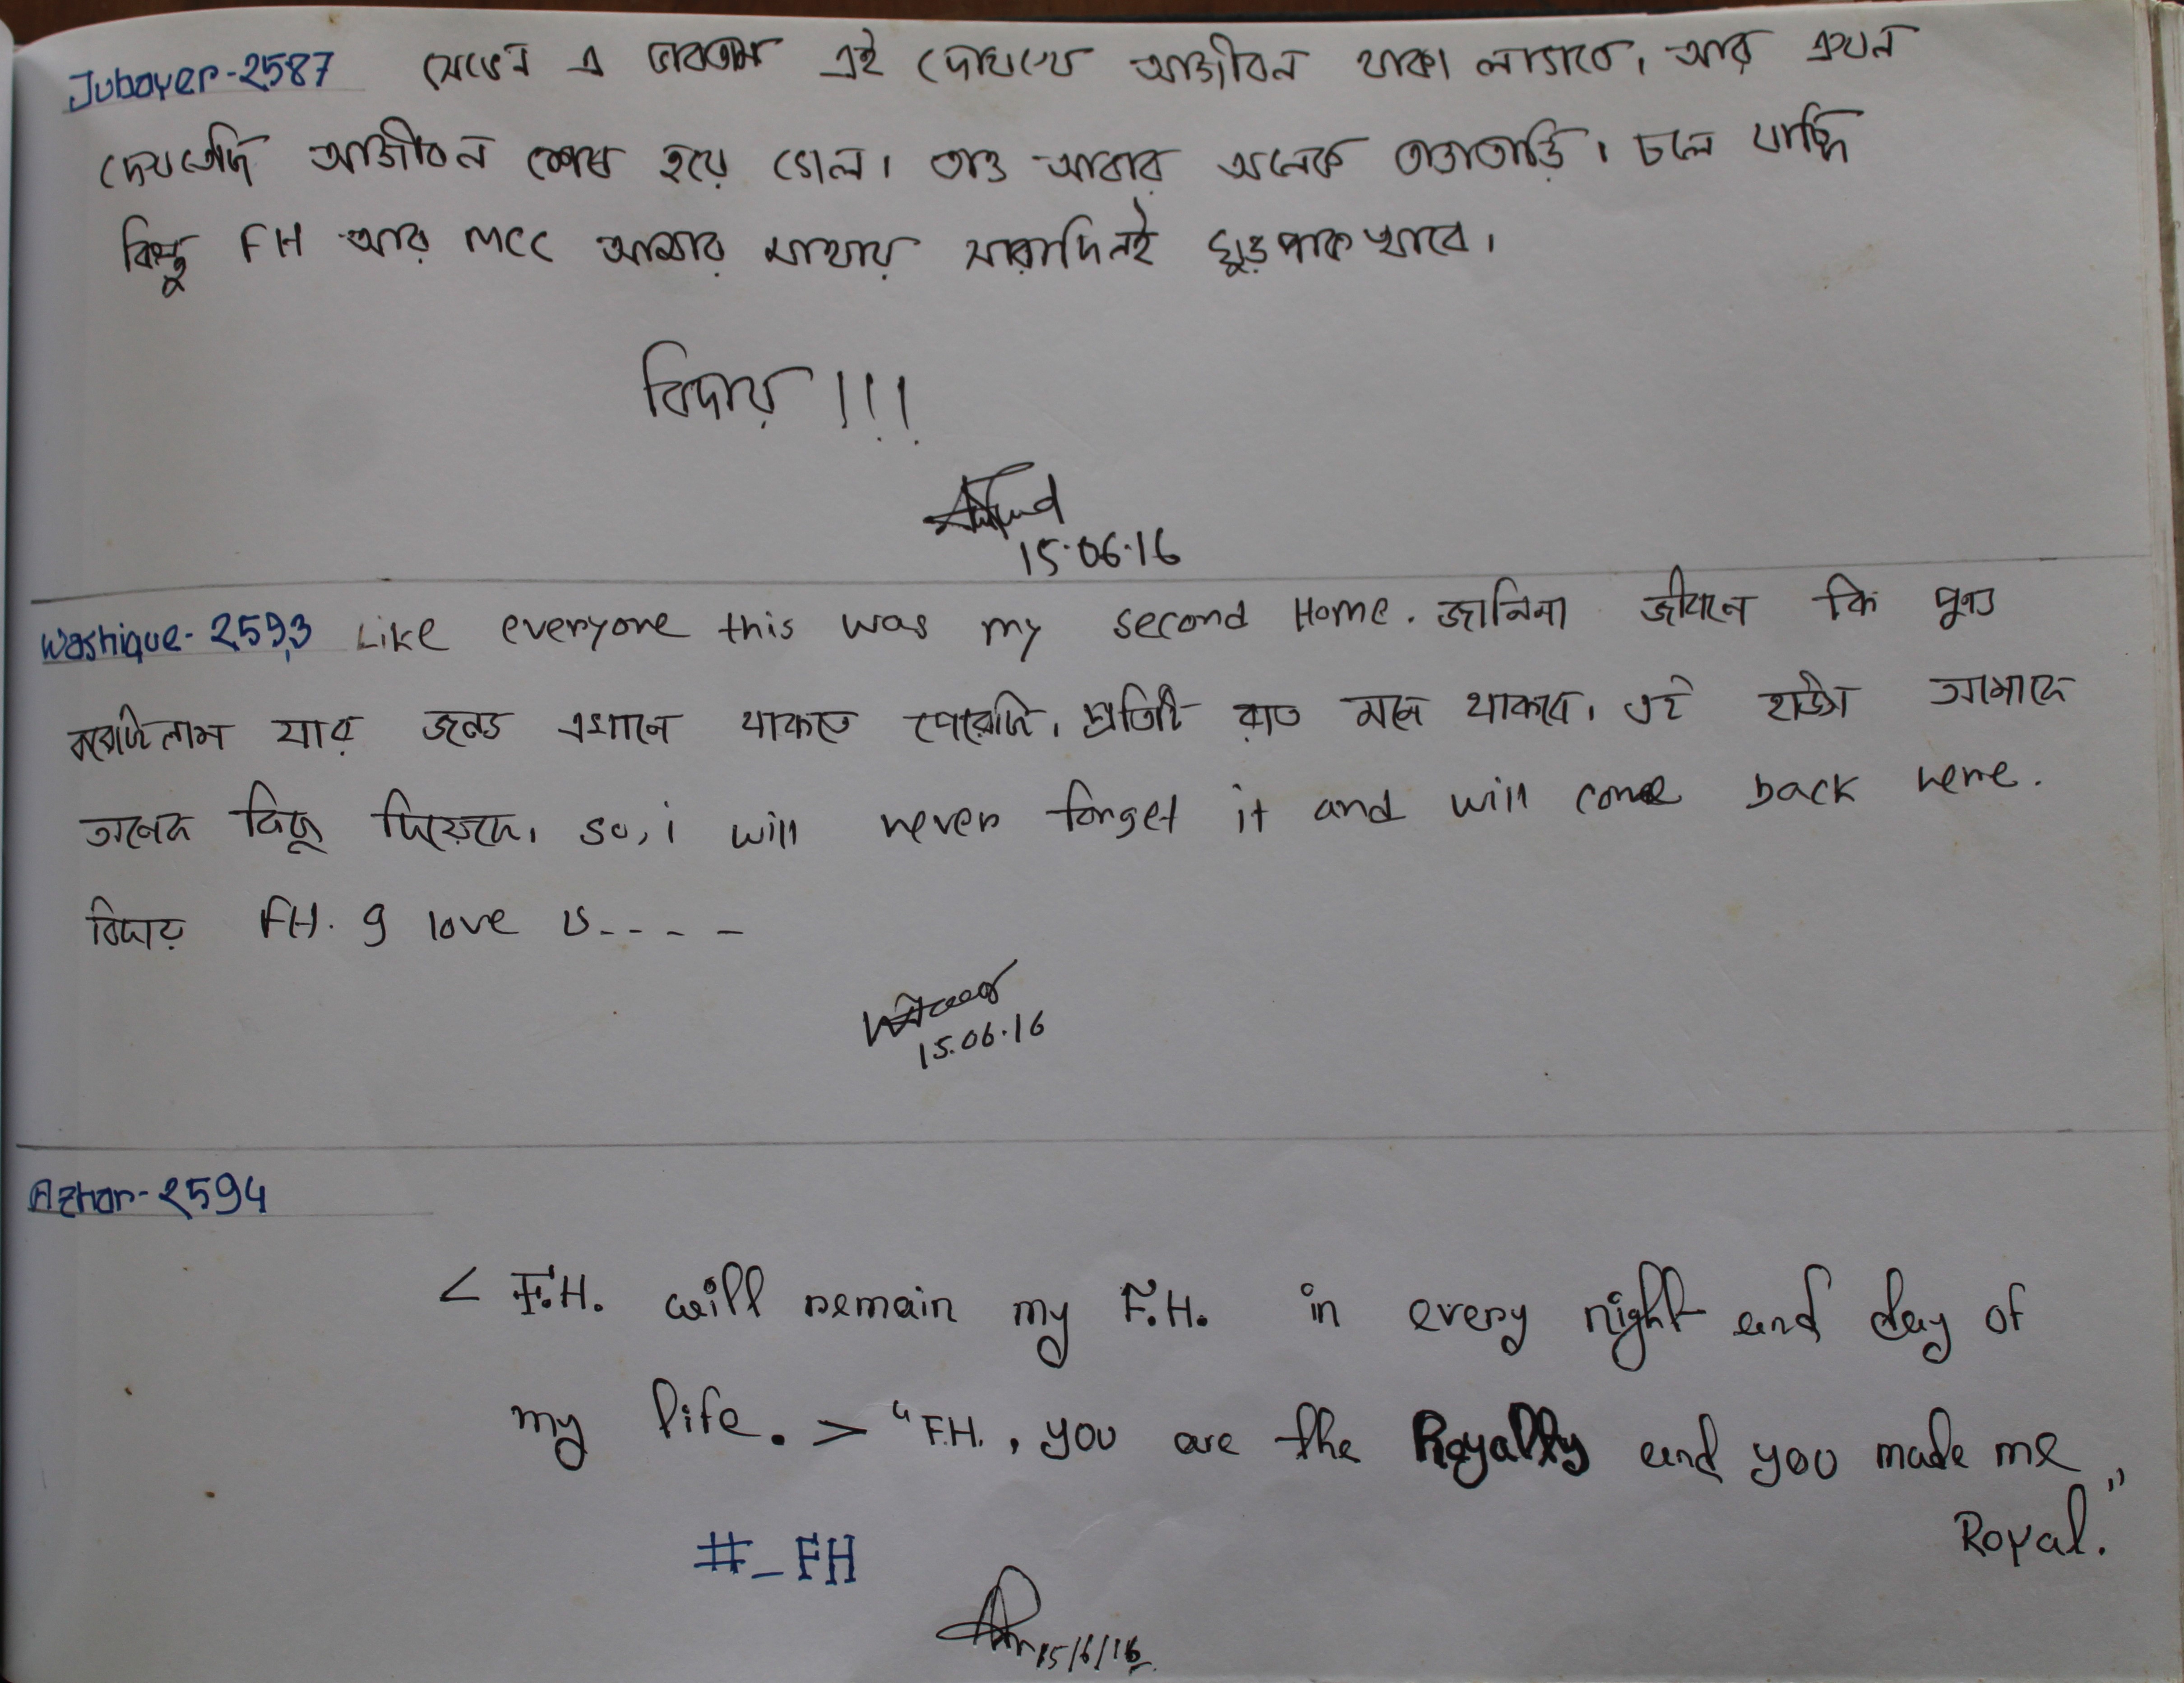 Jubayer-2587 সেভেন এ ভাবতাম এই দোযখে আজীবন থাকা লাগবে। আর এখন
দেখতেছি আজীবন শেষ হয়ে গেল। তাও আবার অনেক তাড়াতাড়ি। চলে যাচ্ছি
কিন্তু FH আর MCC আমার মাথায় সারাদিনই ঘুড়পাক খাবে।
বিদায় !!!
15.06.16
Washique-2593 Like everyone this was my second Home. জানিনা জীবনে কি পুণ্য
করেছিলাম যার জন্য এখানে থাকতে পেরেছি। প্রতিটি রাত মনে থাকবে। এই হাউস আমাকে
অনেক কিছু দিয়েছে। so, i will never forget it and will come back here.
বিদায় FH. I love u - - - -
15.06.16
Azhar-2594
< F.H. will remain my F.H. in every night and day of
my life. > "F.H., you are the Royalty and you made me
Royal."
#_FH
15/6/16